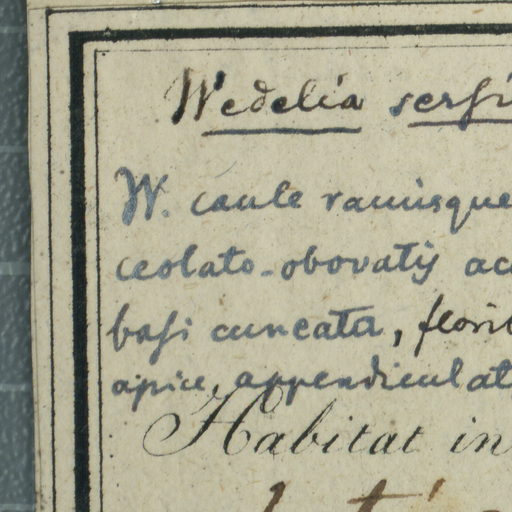 Wedelia serfi
W. caule ramisque
ceolato-obovatis ac
basi cuneata, florib
apice, appendiculat
Habitat in